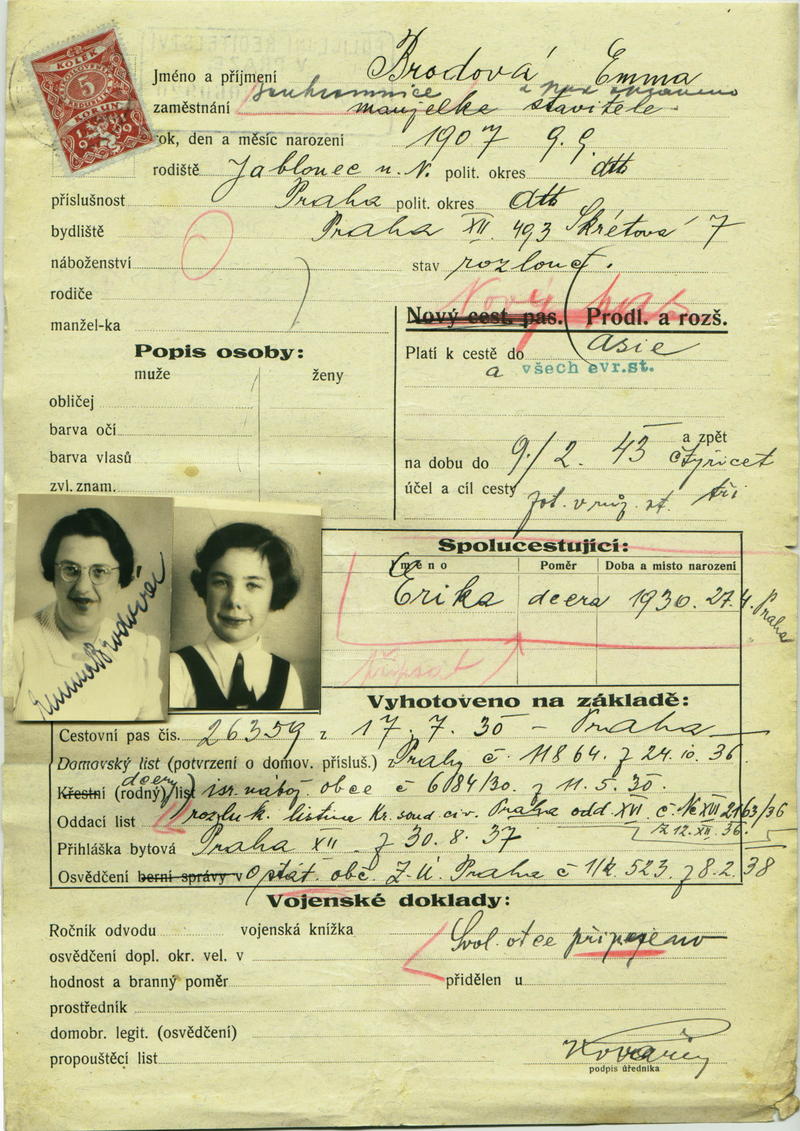 KOLEK
5
KORUN
Jméno a příjmení Brodová Emma
soukromnice
zaměstnání manželka stavitele
rok, den a měsíc narození 1907 9.9.
rodiště Jablonec n. N. polit. okres dtto
příslušnost Praha polit. okres dtto
bydliště Praha XII. 493 Skrétová 7
náboženství stav rozlouč.
rodiče
manžel-ka
Nový pas
Nový cest. pas. Prodl. a rozš.
Popis osoby:
muže ženy
Platí k cestě do Asie
a všech evr. st.
obličej
barva očí
barva vlasů
zvl. znam.
a zpět
na dobu do 9./2. 43 čtyřicet
tři
účel a cíl cesty
Emma Brodová
Spolucestující:
Jméno Poměr Doba a místo narození
Erika dcera 1930. 27.4. Praha
připsat
Vyhotoveno na základě:
Cestovní pas čís. 26359 z 17. 7. 35 – Praha
Domovský list (potvrzení o domov. přísluš.) z Prahy č. 11864. z 24. 10. 36.
dcery
Křestní (rodný) list isr. nábož. obce č 6184/30. z 11. 5. 30.
Oddací list rozluk. listina Kr. soud civ. Praha odd. XVI. č. Nc XVII 2163/36
z 12. XII. 36.
Přihláška bytová Praha XII. z 30. 8. 37
Osvědčení berní správy v o stát. obč. Z. Ú. Praha č 523. z 8. 2. 38
Vojenské doklady:
Ročník odvodu vojenská knížka
Svol. otce připojeno
osvědčení dopl. okr. vel. v
hodnost a branný poměr přidělen u
prostředník
domobr. legit. (osvědčení)
propouštěcí list
podpis úředníka